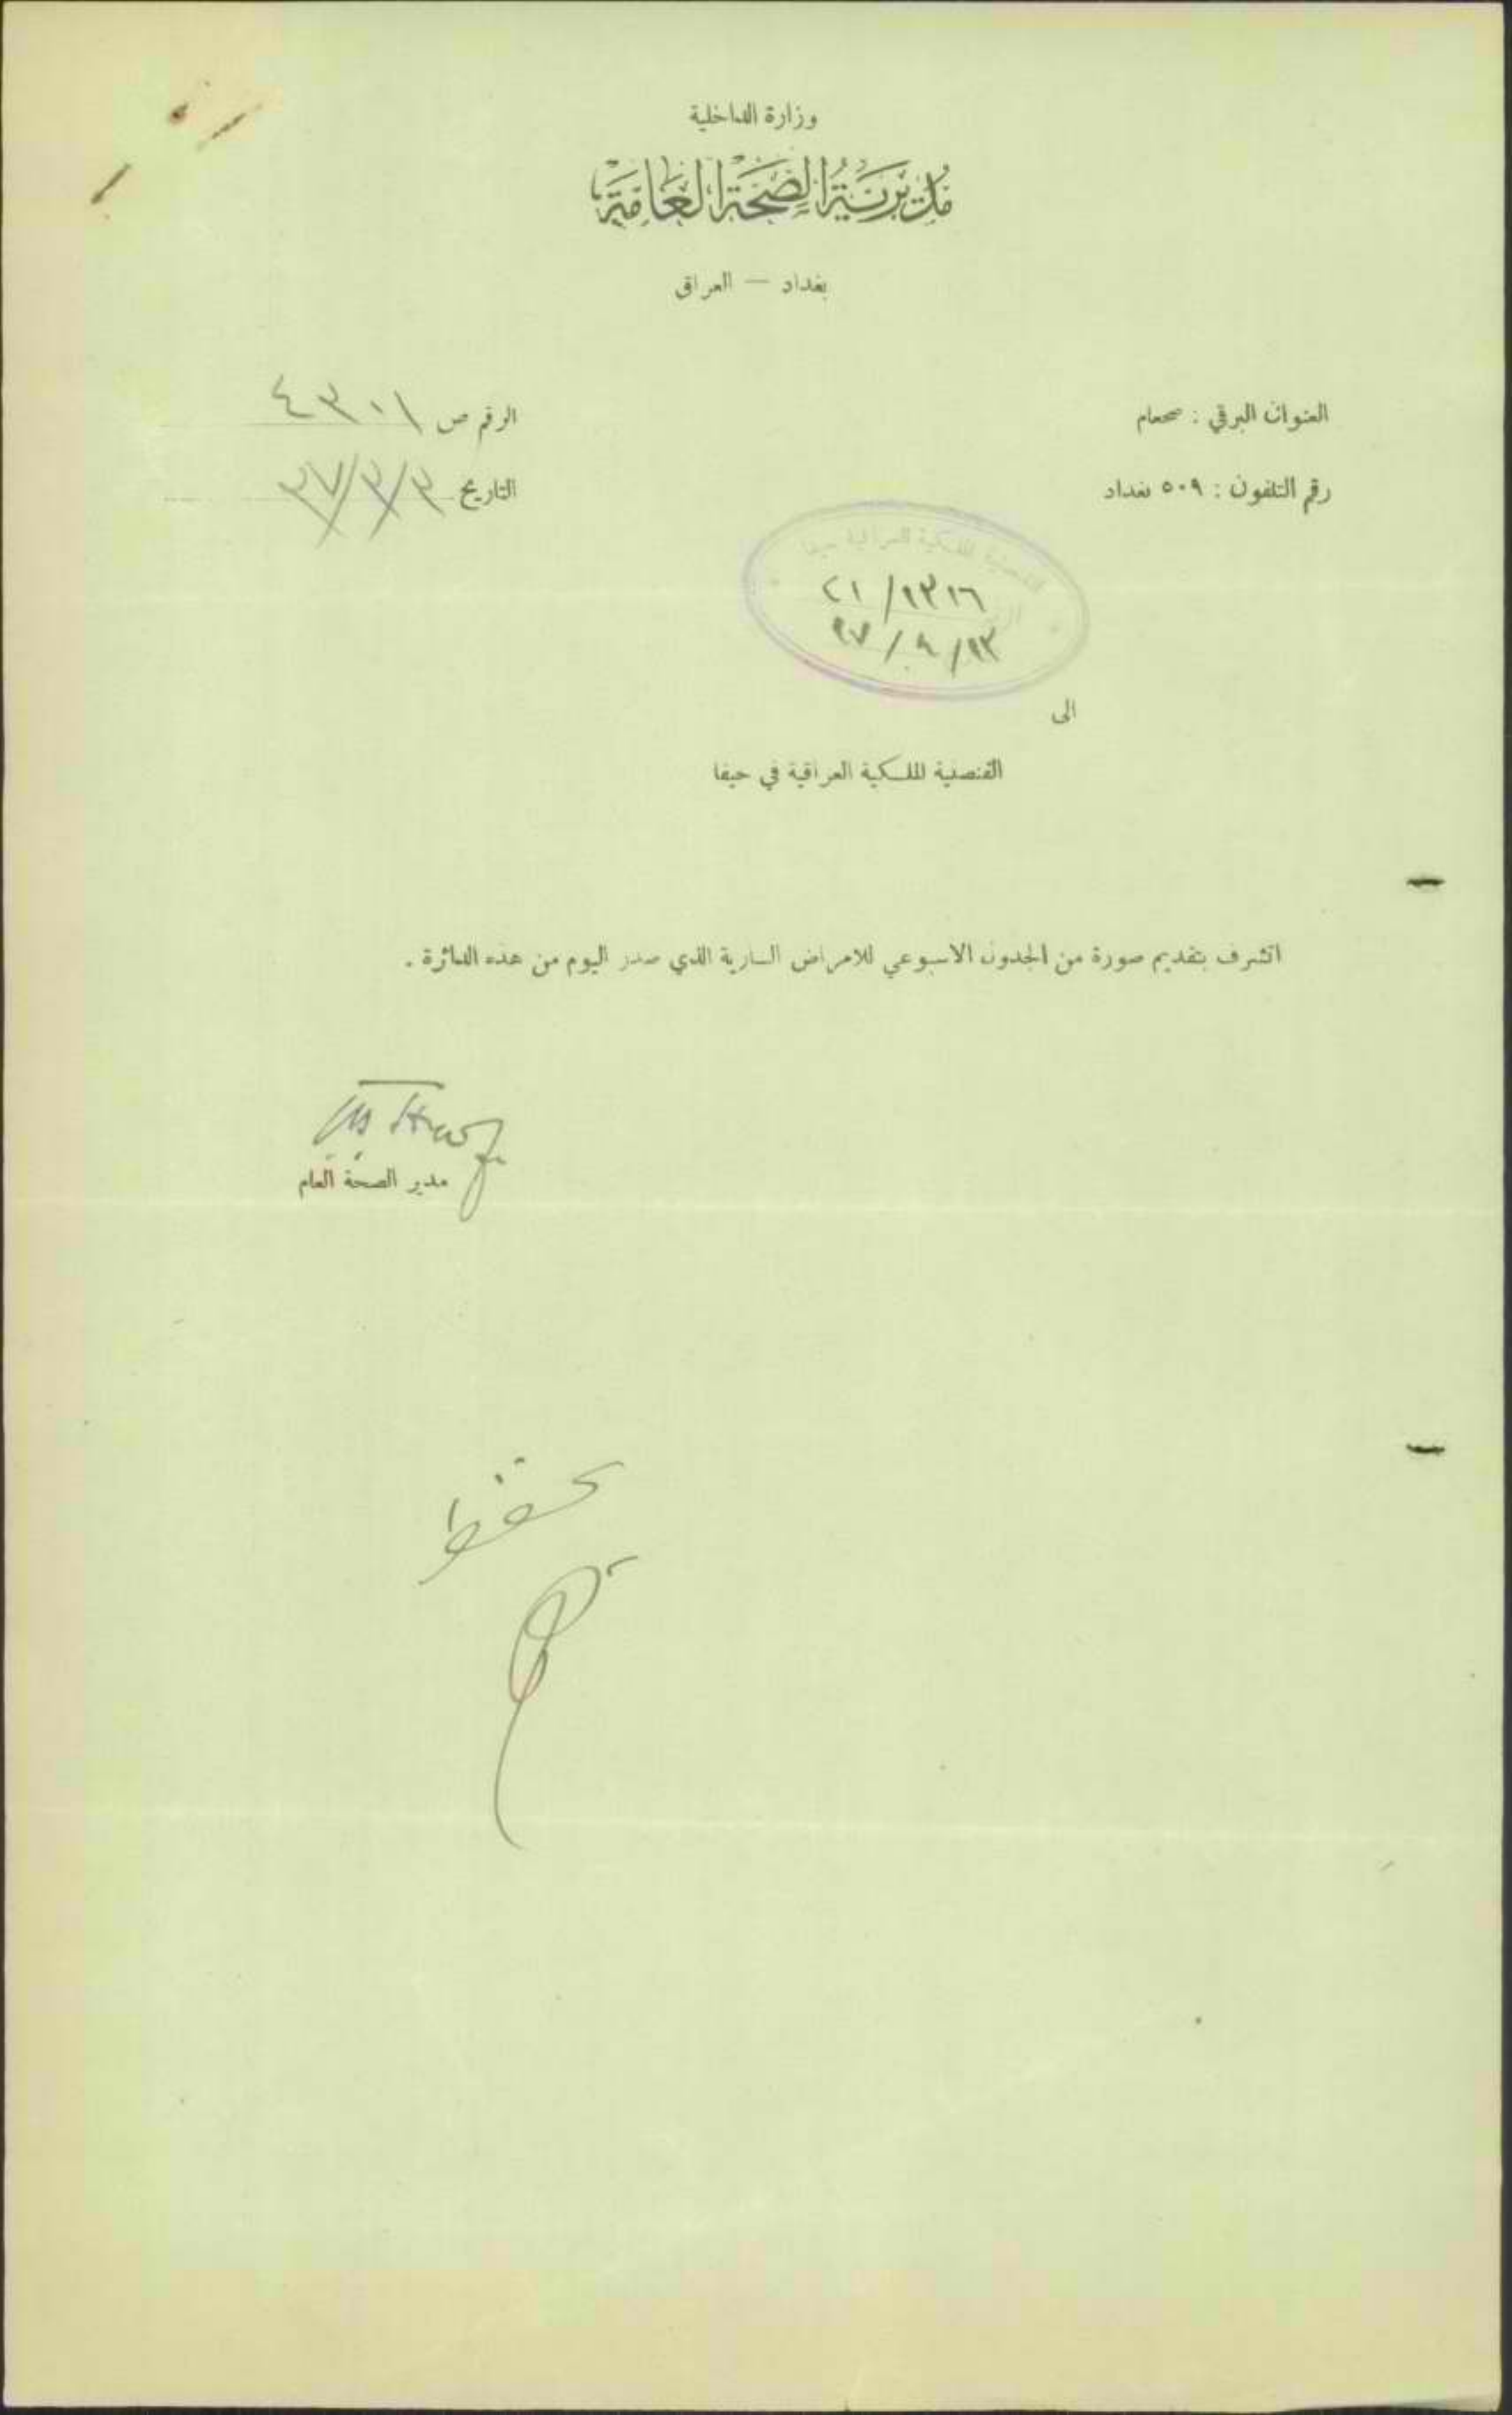 وزارة الداخلية
مديرية الصحة العامة
بغداد — العراق
العنوان البرقي : صحعام
الرقم ص ٤٣٠١
رقم التلفون : ٥٠٩ بغداد
التاريخ ٣/٣/٣٧
القنصلية الملكية العراقية حيفا
٢١/١٣١٦
الى
القنصلية الملكية العراقية في حيفا
اتشرف بتقديم صورة من الجدول الاسبوعي للامراض السارية الذي صدر اليوم من هذه الدائرة .
مدير الصحة العام
تحفظ